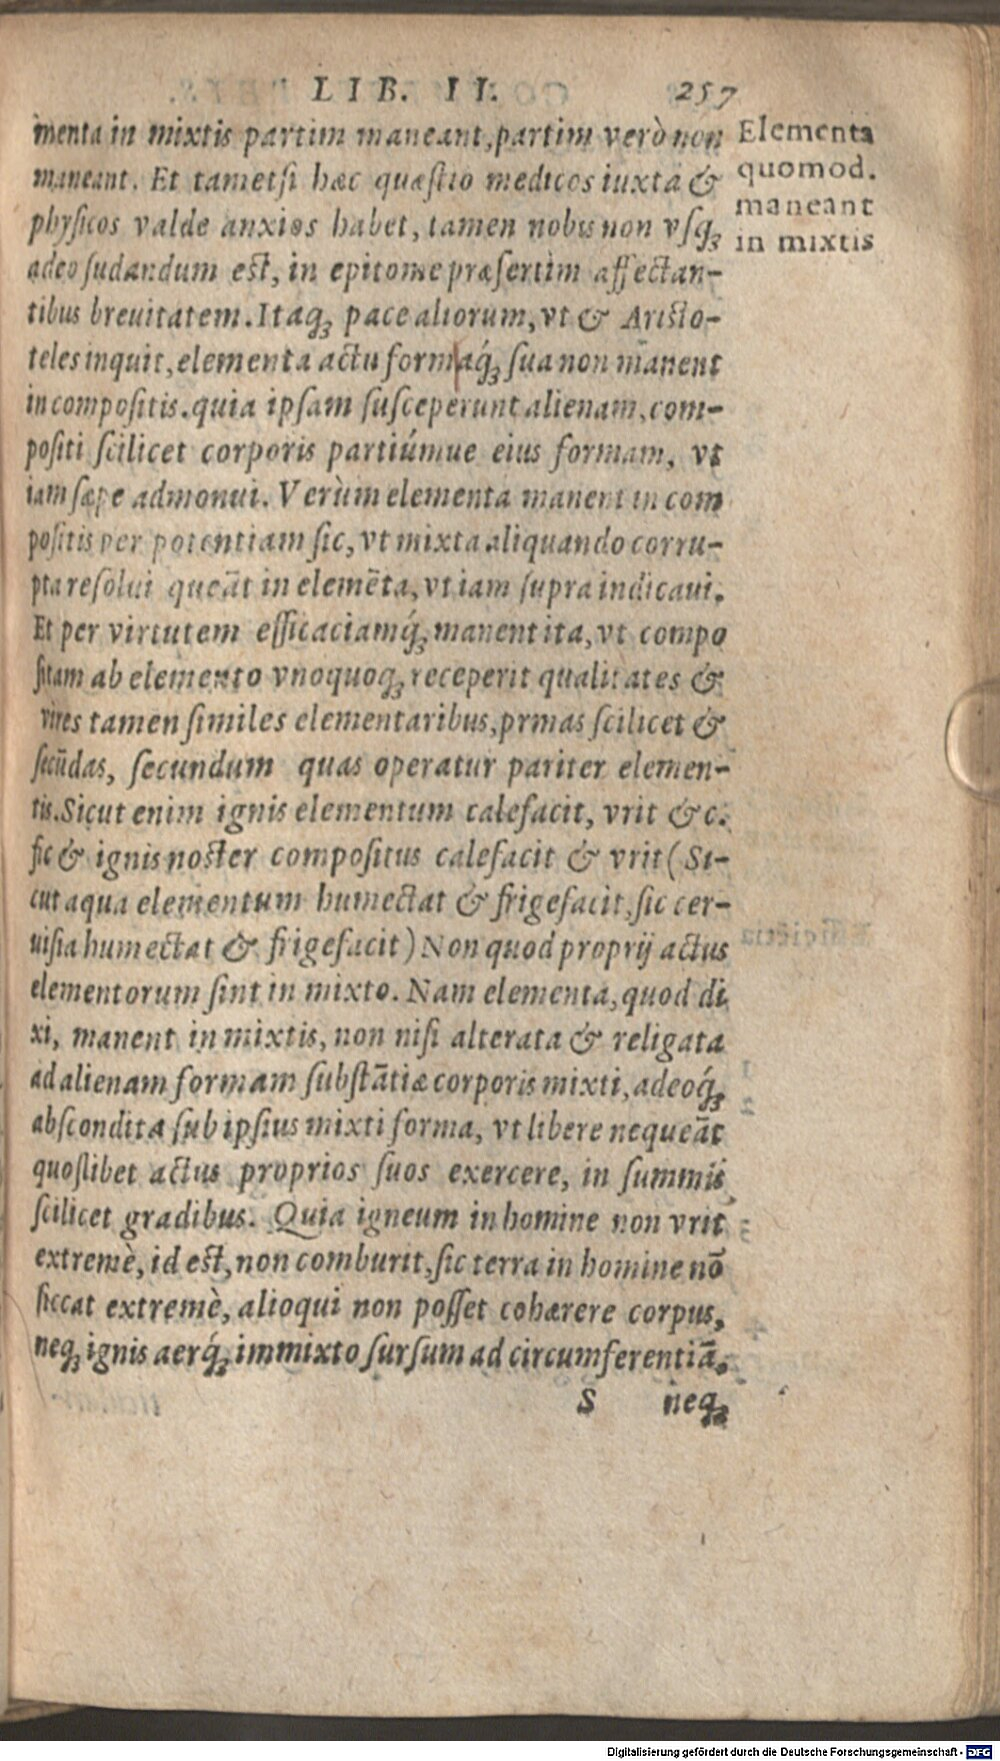 LIB. II. 257
menta in mixtis partim maneant, partim verò non
maneant. Et tametsi hæc quæstio medicos iuxta &
physicos valde anxios habet, tamen nobis non vsq́ꝫ
adeo sudandum est, in epitome præsertim affectan-
tibus breuitatem. Itaqꝫ pace aliorum, vt & Aristo-
teles inquit, elementa actu formaq́ꝫ sua non manent
in compositis. quia ipsam susceperunt alienam, com-
positi scilicet corporis partiúmue eius formam, vt
iam sæpe admonui. Verùm elementa manent in com
positis per potentiam sic, vt mixta aliquando corru-
pta resolui queāt in elemēta, vt iam supra indicaui.
Et per virtutem efficaciamq́ꝫ manent ita, vt compo
situm ab elemento vnoquoqꝫ receperit qualitates &
vires tamen similes elementaribus, prmas scilicet &
secūdas, secundum quas operatur pariter elemen-
tis. Sicut enim ignis elementum calefacit, vrit & c.
sic & ignis noster compositus calefacit & vrit (Si-
cut aqua elementum humectat & frigefacit, sic cer-
uisia humectat & frigefacit) Non quod proprij actus
elementorum sint in mixto. Nam elementa, quod di
xi, manent in mixtis, non nisi alterata & religata
ad alienam formam substātiæ corporis mixti, adeoq́ꝫ
abscondita sub ipsius mixti forma, vt libere nequeāt
quoslibet actus proprios suos exercere, in summis
scilicet gradibus. Quia igneum in homine non vrit
extremè, id est, non comburit, sic terra in homine nō
siccat extremè, alioqui non posset cohærere corpus,
neqꝫ ignis aerq́ꝫ immixto sursum ad circumferentiā.
S neqꝫ
Elementa
quomod.
maneant
in mixtis
Digitalisierung gefördert durch die Deutsche Forschungsgemeinschaft - DFG